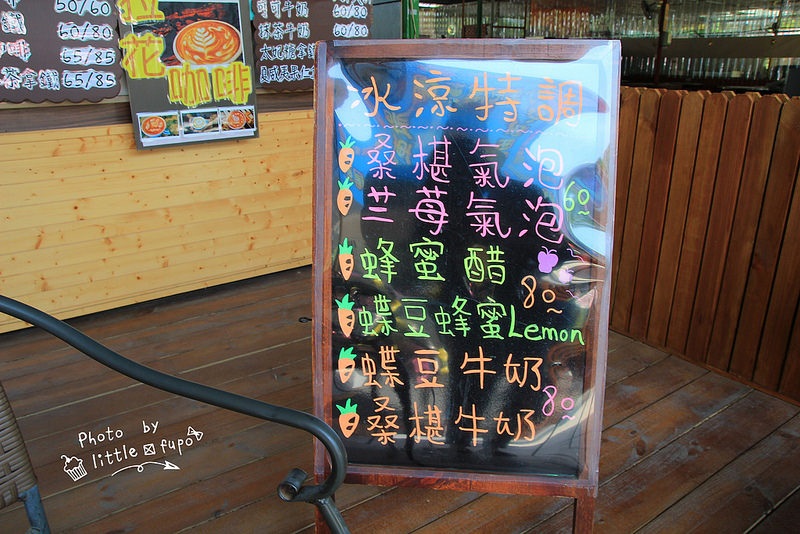 50/60
60/80
啡 65/85
茶拿鐵 65/85
立
花
咖啡
可可牛奶 60/80
抹茶牛奶 60/80
冰涼特調
桑椹氣泡
苎莓氣泡 60
蜂蜜醋
80
蝶豆蜂蜜Lemon
蝶豆牛奶
80
桑椹牛奶
Photo by
little fupo